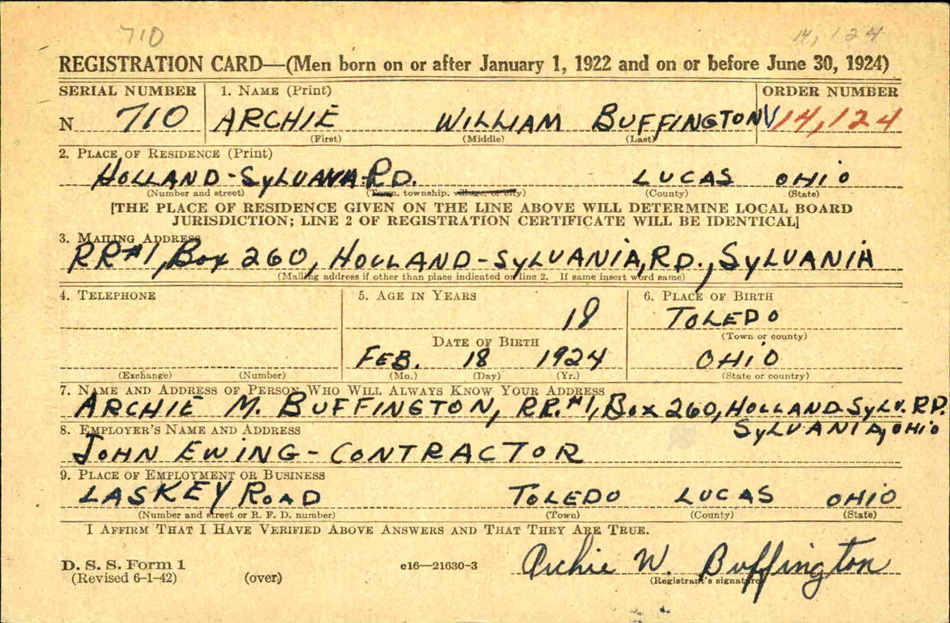 710 14,124
REGISTRATION CARD—(Men born on or after January 1, 1922 and on or before June 30, 1924)
SERIAL NUMBER 1. NAME (Print) ORDER NUMBER
N 710 ARCHIE WILLIAM BUFFINGTON V14,124
(First) (Middle) (Last)
2. PLACE OF RESIDENCE (Print)
HOLLAND-SYLVANIA RD. LUCAS OHIO
(Number and street) (Town, township, village, or city) (County) (State)
[THE PLACE OF RESIDENCE GIVEN ON THE LINE ABOVE WILL DETERMINE LOCAL BOARD
JURISDICTION; LINE 2 OF REGISTRATION CERTIFICATE WILL BE IDENTICAL]
3. MAILING ADDRESS
RR#1, BOX 260, HOLLAND-SYLVANIA, RD., SYLVANIA
(Mailing address if other than place indicated on line 2. If same insert word same)
4. TELEPHONE 5. AGE IN YEARS 6. PLACE OF BIRTH
18 TOLEDO
DATE OF BIRTH (Town or county)
FEB. 18 1924 OHIO
(Exchange) (Number) (Mo.) (Day) (Yr.) (State or country)
7. NAME AND ADDRESS OF PERSON WHO WILL ALWAYS KNOW YOUR ADDRESS
ARCHIE M. BUFFINGTON, R.R.#1, BOX 260, HOLLAND SYLV. RD.
SYLVANIA, OHIO
8. EMPLOYER'S NAME AND ADDRESS
JOHN EWING-CONTRACTOR
9. PLACE OF EMPLOYMENT OR BUSINESS
LASKEY ROAD TOLEDO LUCAS OHIO
(Number and street or R. F. D. number) (Town) (County) (State)
I AFFIRM THAT I HAVE VERIFIED ABOVE ANSWERS AND THAT THEY ARE TRUE.
D. S. S. Form 1
(Revised 6-1-42) (over) c16—21630-3 Archie W. Buffington
(Registrant's signature)